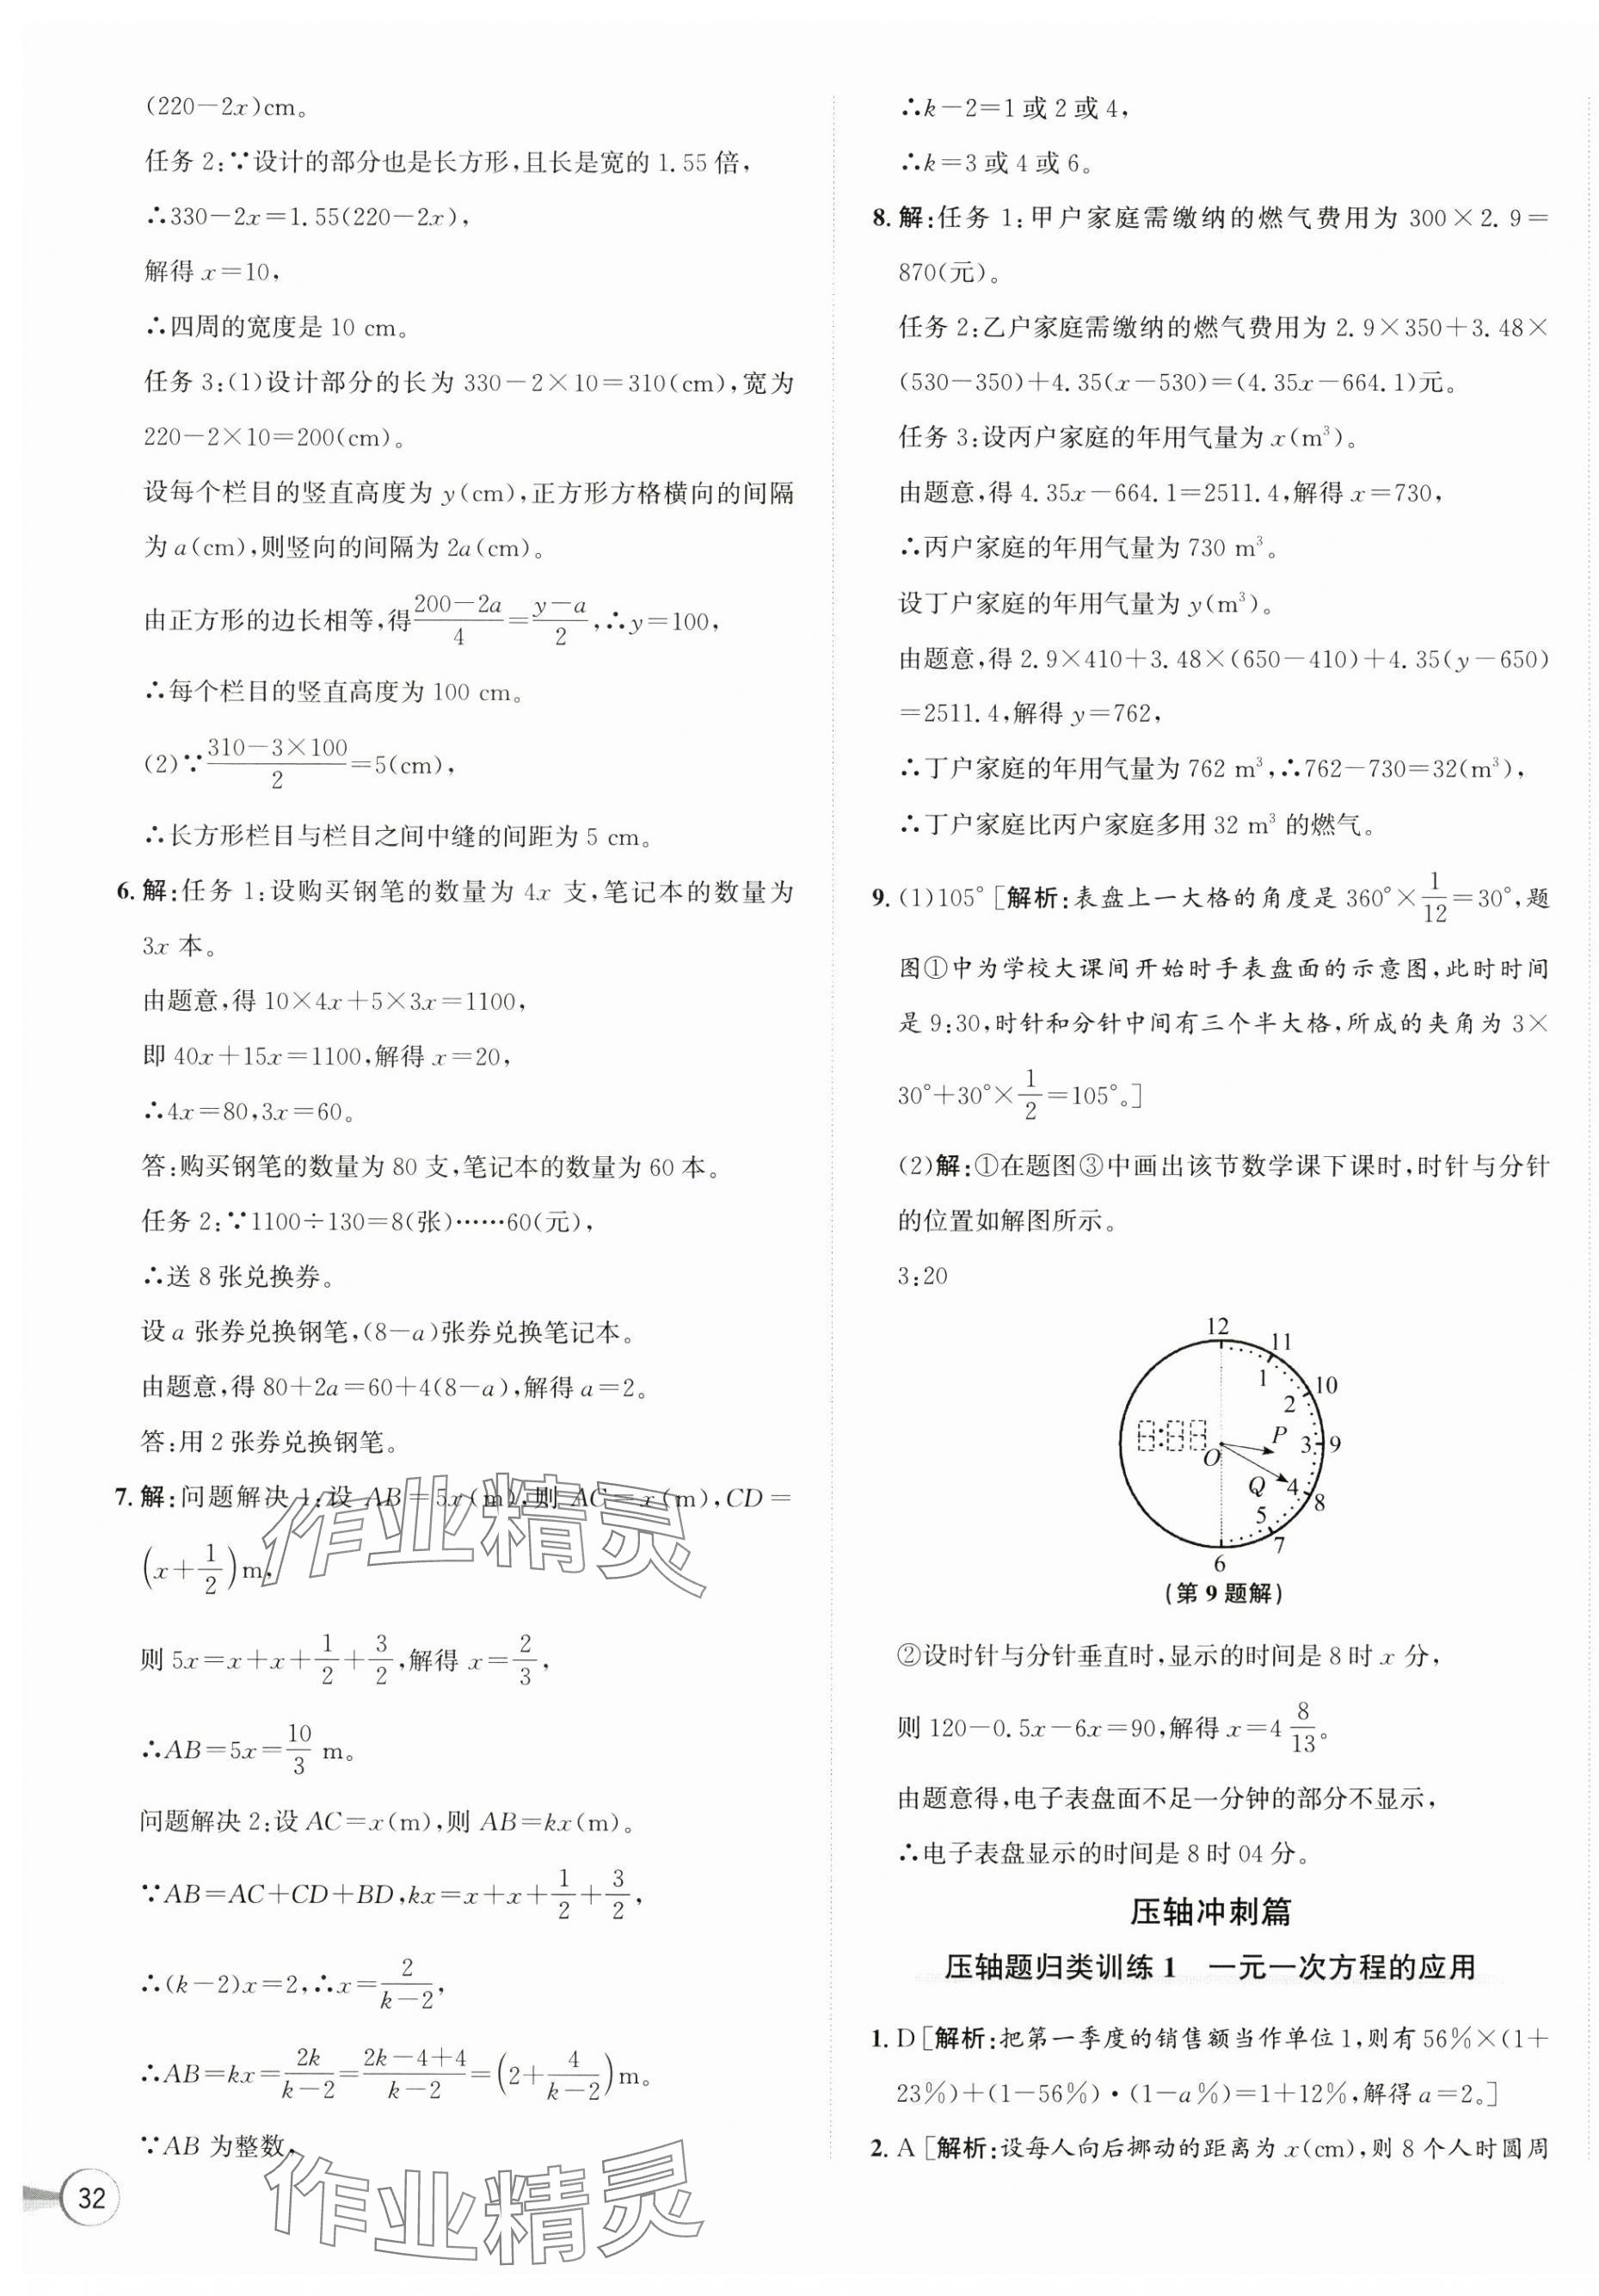 (220－2x)cm。
任务 2:∵设计的部分也是长方形,且长是宽的 1.55 倍,
∴330－2x＝1.55(220－2x),
解得 x＝10,
∴四周的宽度是 10 cm。
任务 3:(1)设计部分的长为 330－2×10＝310(cm),宽为
220－2×10＝200(cm)。
设每个栏目的竖直高度为 y(cm),正方形方格横向的间隔
为 a(cm),则竖向的间隔为 2a(cm)。
由正方形的边长相等,得(200－2a)/4＝(y－a)/2,∴y＝100,
∴每个栏目的竖直高度为 100 cm。
(2)∵(310－3×100)/2＝5(cm),
∴长方形栏目与栏目之间中缝的间距为 5 cm。
6. 解:任务 1:设购买钢笔的数量为 4x 支,笔记本的数量为
3x 本。
由题意,得 10×4x＋5×3x＝1100,
即 40x＋15x＝1100,解得 x＝20,
∴4x＝80,3x＝60。
答:购买钢笔的数量为 80 支,笔记本的数量为 60 本。
任务 2:∵1100÷130＝8(张)……60(元),
∴送 8 张兑换券。
设 a 张券兑换钢笔,(8－a)张券兑换笔记本。
由题意,得 80＋2a＝60＋4(8－a),解得 a＝2。
答:用 2 张券兑换钢笔。
7. 解:问题解决 1:设 AB＝5x(m),则 AC＝x(m),CD＝
(x＋1/2)m,
则 5x＝x＋x＋1/2＋3/2,解得 x＝2/3,
∴AB＝5x＝10/3 m。
问题解决 2:设 AC＝x(m),则 AB＝kx(m)。
∵AB＝AC＋CD＋BD,kx＝x＋x＋1/2＋3/2,
∴(k－2)x＝2,∴x＝2/(k－2),
∴AB＝kx＝2k/(k－2)＝(2k－4＋4)/(k－2)＝(2＋4/(k－2))m。
∵AB 为整数,
作业精灵
作业精灵
32
∴k－2＝1 或 2 或 4,
∴k＝3 或 4 或 6。
8. 解:任务 1:甲户家庭需缴纳的燃气费用为 300×2.9＝
870(元)。
任务 2:乙户家庭需缴纳的燃气费用为 2.9×350＋3.48×
(530－350)＋4.35(x－530)＝(4.35x－664.1)元。
任务 3:设丙户家庭的年用气量为 x(m³)。
由题意,得 4.35x－664.1＝2511.4,解得 x＝730,
∴丙户家庭的年用气量为 730 m³。
设丁户家庭的年用气量为 y(m³)。
由题意,得 2.9×410＋3.48×(650－410)＋4.35(y－650)
＝2511.4,解得 y＝762,
∴丁户家庭的年用气量为 762 m³,∴762－730＝32(m³),
∴丁户家庭比丙户家庭多用 32 m³ 的燃气。
9. (1)105°[解析:表盘上一大格的角度是 360°×1/12＝30°,题
图①中为学校大课间开始时手表盘面的示意图,此时时间
是 9:30,时针和分针中间有三个半大格,所成的夹角为 3×
30°＋30°×1/2＝105°。]
(2)解:①在题图③中画出该节数学课下课时,时针与分针
的位置如解图所示。
3:20
12
11
1
10
2
8:88
P
3
9
O
Q
4
8
5
7
6
(第 9 题解)
②设时针与分针垂直时,显示的时间是 8 时 x 分,
则 120－0.5x－6x＝90,解得 x＝4 8/13。
由题意得,电子表盘面不足一分钟的部分不显示,
∴电子表盘显示的时间是 8 时 04 分。
压轴冲刺篇
压轴题归类训练 1　一元一次方程的应用
1. D[解析:把第一季度的销售额当作单位 1,则有 56%×(1＋
23%)＋(1－56%)·(1－a%)＝1＋12%,解得 a＝2。]
2. A[解析:设每人向后挪动的距离为 x(cm),则 8 个人时圆周